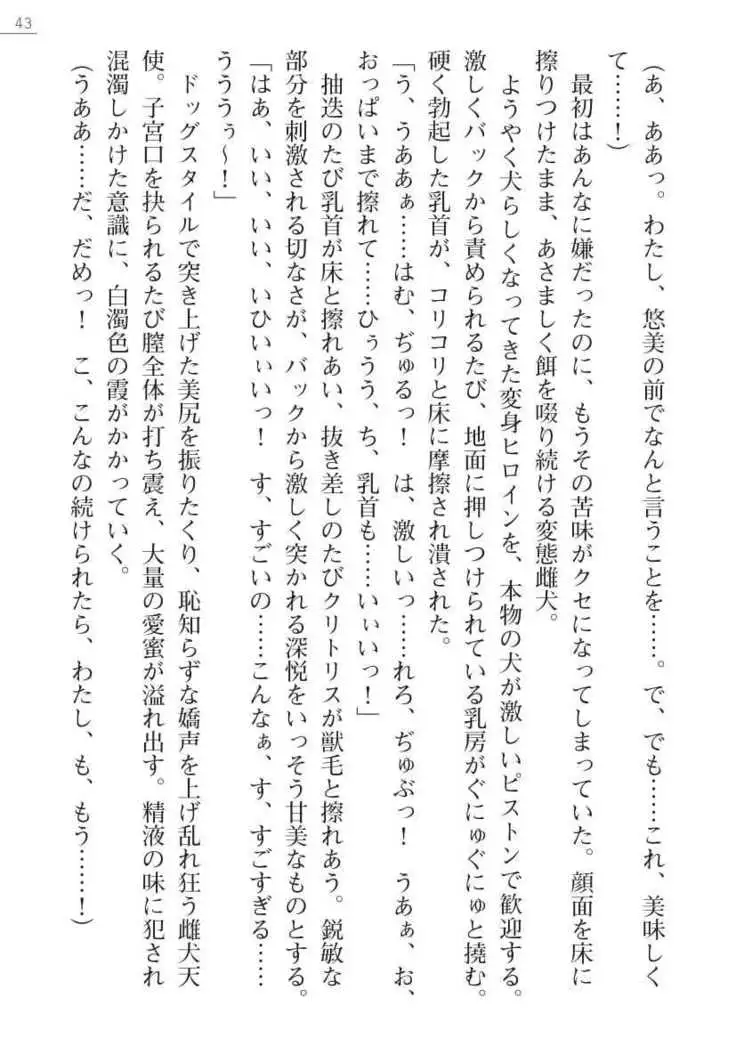 43
(あ、ああっ。わたし、悠美の前でなんと言うことを……。で、でも……これ、美味しく
て……！)
　最初はあんなに嫌だったのに、もうその苦味がクセになってしまっていた。顔面を床に
擦りつけたまま、あさましく餌を啜り続ける変態雌犬。
　ようやく犬らしくなってきた変身ヒロインを、本物の犬が激しいピストンで歓迎する。
激しくバックから責められるたび、地面に押しつけられている乳房がぐにゅぐにゅと撓む。
硬く勃起した乳首が、コリコリと床に摩擦され潰された。
「う、うああぁ……はむ、ぢゅるっ！　は、激しいっ……れろ、ぢゅぶっ！　うあぁ、お、
おっぱいまで擦れて……ひぅうう、ち、乳首も……いぃいっ！」
　抽迭のたび乳首が床と擦れあい、抜き差しのたびクリトリスが獣毛と擦れあう。鋭敏な
部分を刺激される切なさが、バックから激しく突かれる深悦をいっそう甘美なものとする。
「はあ、いい、いい、いひいぃいっ！　す、すごいの……こんなぁ、す、すごすぎる……
うううぅ～！」
　ドッグスタイルで突き上げた美尻を振りたくり、恥知らずな嬌声を上げ乱れ狂う雌犬天
使。子宮口を抉られるたび膣全体が打ち震え、大量の愛蜜が溢れ出す。精液の味に犯され
混濁しかけた意識に、白濁色の霞がかかっていく。
(うああ……だ、だめっ！　こ、こんなの続けられたら、わたし、も、もう……！)